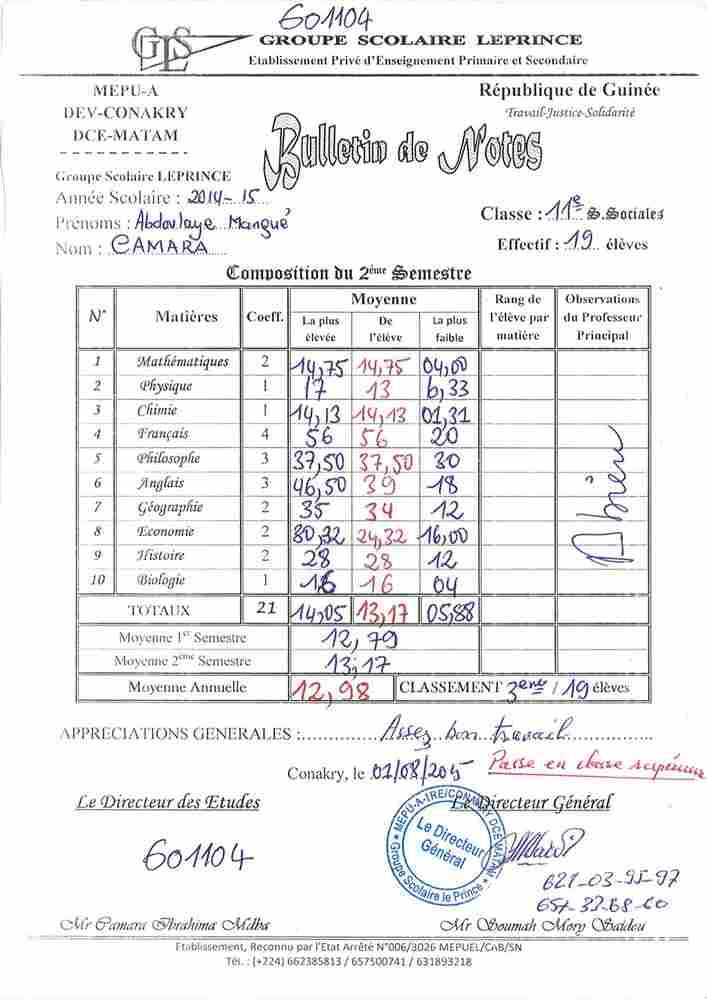 601104
GLS
GROUPE SCOLAIRE LEPRINCE
Etablissement Privé d'Enseignement Primaire et Secondaire
MEPU-A
DEV-CONAKRY
DCE-MATAM
République de Guinée
Travail-Justice-Solidarité
Bulletin de Notes
Groupe Scolaire LEPRINCE
Année Scolaire : 2014-15
Prénoms : Abdoulaye Mangué
Nom : CAMARA
Classe : 11e S.Sociales
Effectif : 19 élèves
Composition du 2ème Semestre
N° Matières Coeff. Moyenne Rang de l'élève par matière Observations du Professeur Principal
La plus élevée De l'élève La plus faible
1 Mathématiques 2 14,75 14,75 04,00
2 Physique 1 17 13 6,33
3 Chimie 1 14,13 14,13 01,31
4 Français 4 56 56 20
5 Philosophe 3 37,50 37,50 30
6 Anglais 3 46,50 39 18
7 Géographie 2 35 34 12
8 Economie 2 30,32 24,32 16,00
9 Histoire 2 28 28 12
10 Biologie 1 16 16 04
TOTAUX 21 14,05 13,17 05,88
Moyenne 1er Semestre 12,79
Moyenne 2ème Semestre 13,17
Moyenne Annuelle 12,98 CLASSEMENT 3ème / 19 élèves
APPRECIATIONS GENERALES : Assez bon travail
Conakry, le 01/08/2015
Passe en classe supérieure
Le Directeur des Etudes
Le Directeur Général
MEPU-A-IRE/CONAKRY DCE MATAM
Le Directeur Général
Groupe Scolaire le Prince
601104
621-03-95-97
657-32-68-60
Mr Camara Ibrahima Mdba
Mr Soumah Mory Saïdou
Etablissement, Reconnu par l'Etat Arrêté N°006/3026 MEPUEL/CAB/SN
Tél. : (+224) 662385813 / 657500741 / 631893218